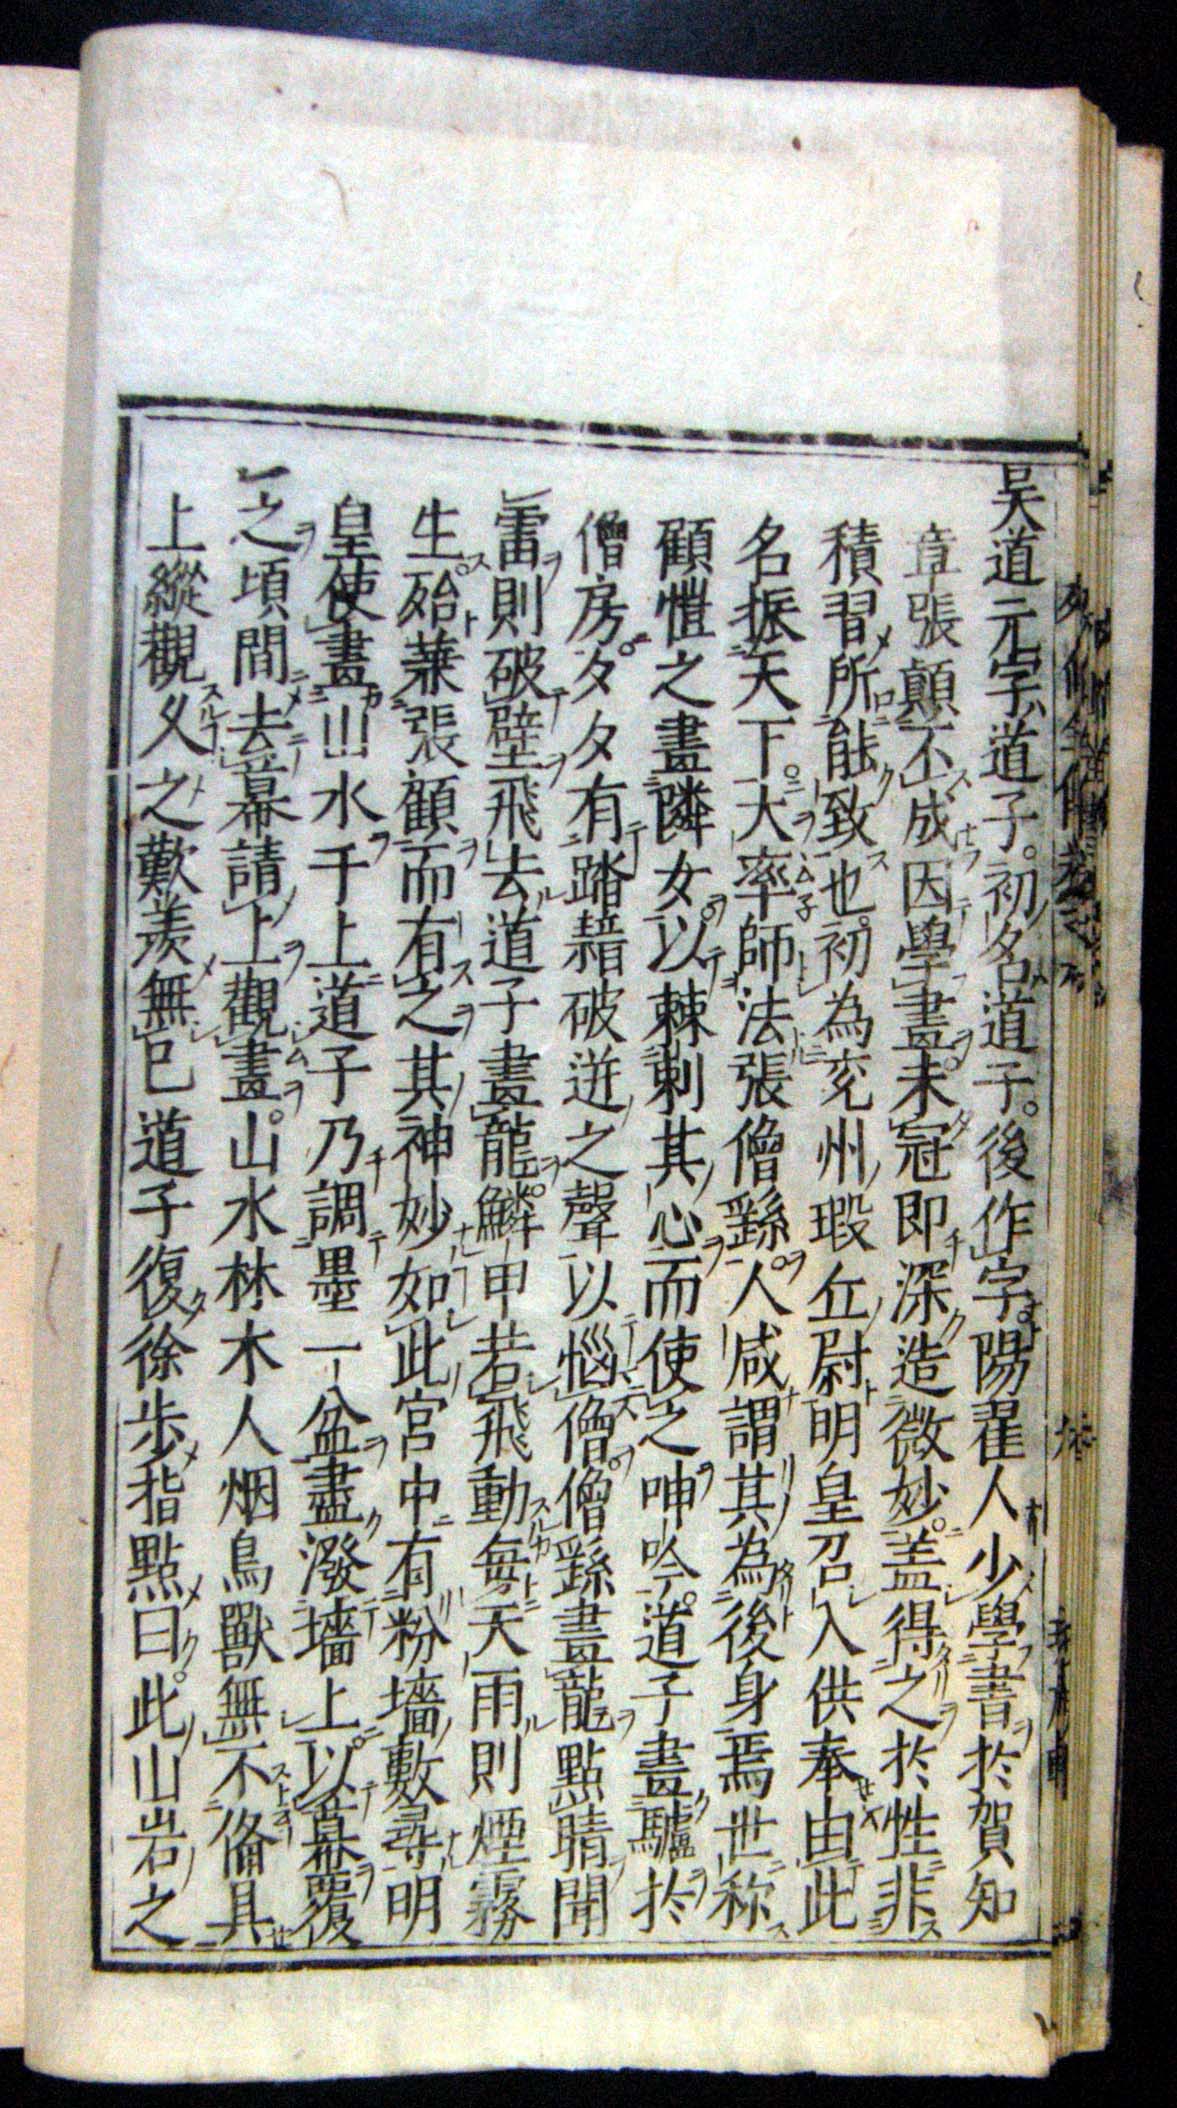 吳道元字道子初名道子後作字陽翟人少學書於賀知
章張顛不成因學畫未冠即深造微妙盖得之於性非
積習所能致也初為兖州瑕丘尉明皇召入供奉由此
名振天下大率師法張僧繇人咸謂其為後身焉世称
顧愷之畫隣女以棘刺其心而使之呻吟道子畫驢於
僧房夕夕有踏藉破迸之聲以惱僧僧繇畫龍點睛聞
雷則破壁飛去道子畫龍鱗甲若飛動每天雨則煙霧
生殆兼張顧而有之其神妙如此宮中有粉墻數尋明
皇使畫山水于上道子乃調墨一盆盡潑墻上以幕覆
之頃間去幕請上觀畫山水林木人烟鳥獸無不俻具
上縱觀久之歎羨無已道子復徐步指點曰此山岩之